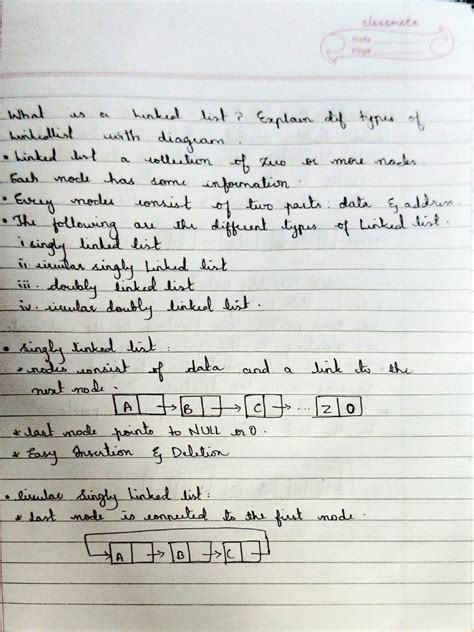 classmate
Date
Page
What is a Linked list? Explain dif types of
Linkedlist with diagram.
• Linked list a collection of zero or more nodes.
Each node has some information.
• Every nodes consist of two parts. data & address
• The following are the different types of Linked list:
i. singly linked list
ii. circular singly Linked list
iii. doubly linked list
iv. circular doubly linked list.
• Singly linked list:
* nodes consist of data and a link to the
next node.
A B C ... Z 0
* last node points to NULL or 0.
* Easy Insertion & Deletion
• Circular Singly Linked list:
* last node is connected to the first node.
A B C